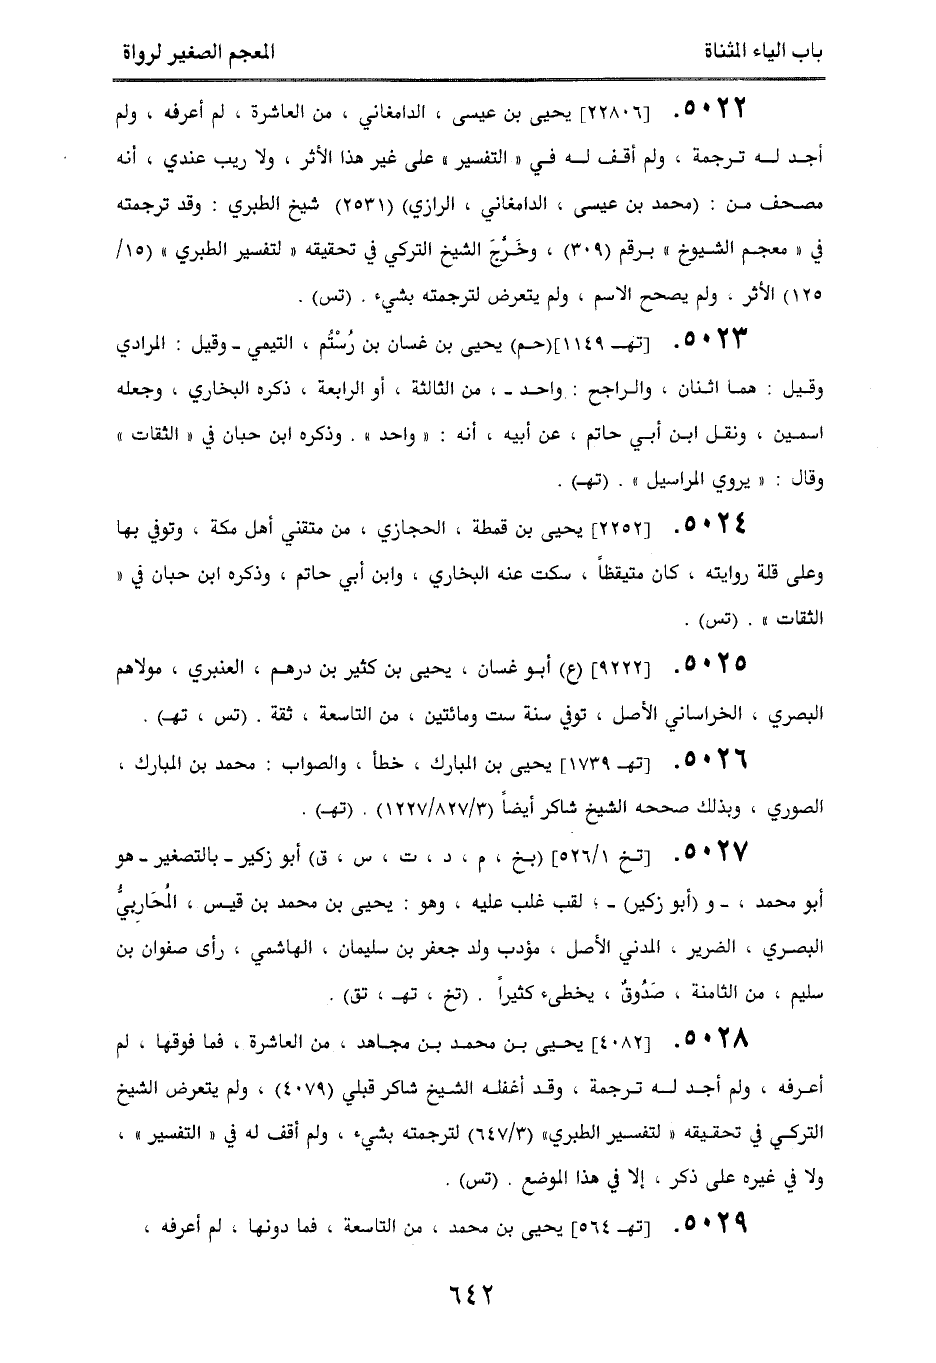 باب الياء المثناة
المعجم الصغير لرواة
٥٠٢٢. [٢٢٨٠٦] يحيى بن عيسى ، الدامغاني ، من العاشرة ، لم أعرفه ، ولم
أجد له ترجمة ، ولم أقف له في « التفسير » على غير هذا الأثر ، ولا ريب عندي ، أنه
مصحف من : (محمد بن عيسى ، الدامغاني ، الرازي) (٢٥٣١) شيخ الطبري : وقد ترجمته
في « معجم الشيوخ » برقم (٣٠٩) ، وخَرَّجَ الشيخ التركي في تحقيقه « لتفسير الطبري » (١٥/
١٢٥) الأثر ، ولم يصحح الاسم ، ولم يتعرض لترجمته بشيء . (تس) .
٥٠٢٣. [تهـ ١١٤٩](حم) يحيى بن غسان بن رُسْتُم ، التيمي ـ وقيل : المرادي
وقيل : هما اثنان ، والراجح : واحد ـ ، من الثالثة ، أو الرابعة ، ذكره البخاري ، وجعله
اسمين ، ونقل ابن أبي حاتم ، عن أبيه ، أنه : « واحد » . وذكره ابن حبان في « الثقات »
وقال : « يروي المراسيل » . (تهـ) .
٥٠٢٤. [٢٢٥٢] يحيى بن قمطة ، الحجازي ، من متقني أهل مكة ، وتوفي بها
وعلى قلة روايته ، كان متيقظاً ، سكت عنه البخاري ، وابن أبي حاتم ، وذكره ابن حبان في «
الثقات » . (تس) .
٥٠٢٥. [٩٢٢٢] (ع) أبو غسان ، يحيى بن كثير بن درهم ، العنبري ، مولاهم
البصري ، الخراساني الأصل ، توفي سنة ست ومائتين ، من التاسعة ، ثقة . (تس ، تهـ) .
٥٠٢٦. [تهـ ١٧٣٩] يحيى بن المبارك ، خطأ ، والصواب : محمد بن المبارك ،
الصوري ، وبذلك صححه الشيخ شاكر أيضاً (١٢٢٧/٨٢٧/٣) . (تهـ) .
٥٠٢٧. [تخ ٥٢٦/١] (بخ ، م ، د ، ت ، س ، ق) أبو زكير ـ بالتصغير ـ هو
أبو محمد ، ـ و (أبو زكير) ـ ؛ لقب غلب عليه ، وهو : يحيى بن محمد بن قيس ، المُحَاربيُّ
البصري ، الضرير ، المدني الأصل ، مؤدب ولد جعفر بن سليمان ، الهاشمي ، رأى صفوان بن
سليم ، من الثامنة ، صَدُوقٌ ، يخطىء كثيراً . (تخ ، تهـ ، تق) .
٥٠٢٨. [٤٠٨٢] يحيى بن محمد بن مجاهد ، من العاشرة ، فما فوقها ، لم
أعرفه ، ولم أجد له ترجمة ، وقد أغفله الشيخ شاكر قبلي (٤٠٧٩) ، ولم يتعرض الشيخ
التركي في تحقيقه « لتفسير الطبري» (٦٤٧/٣) لترجمته بشيء ، ولم أقف له في « التفسير » ،
ولا في غيره على ذكر ، إلا في هذا الموضع . (تس) .
٥٠٢٩. [تهـ ٥٦٤] يحيى بن محمد ، من التاسعة ، فما دونها ، لم أعرفه ،
٦٤٢